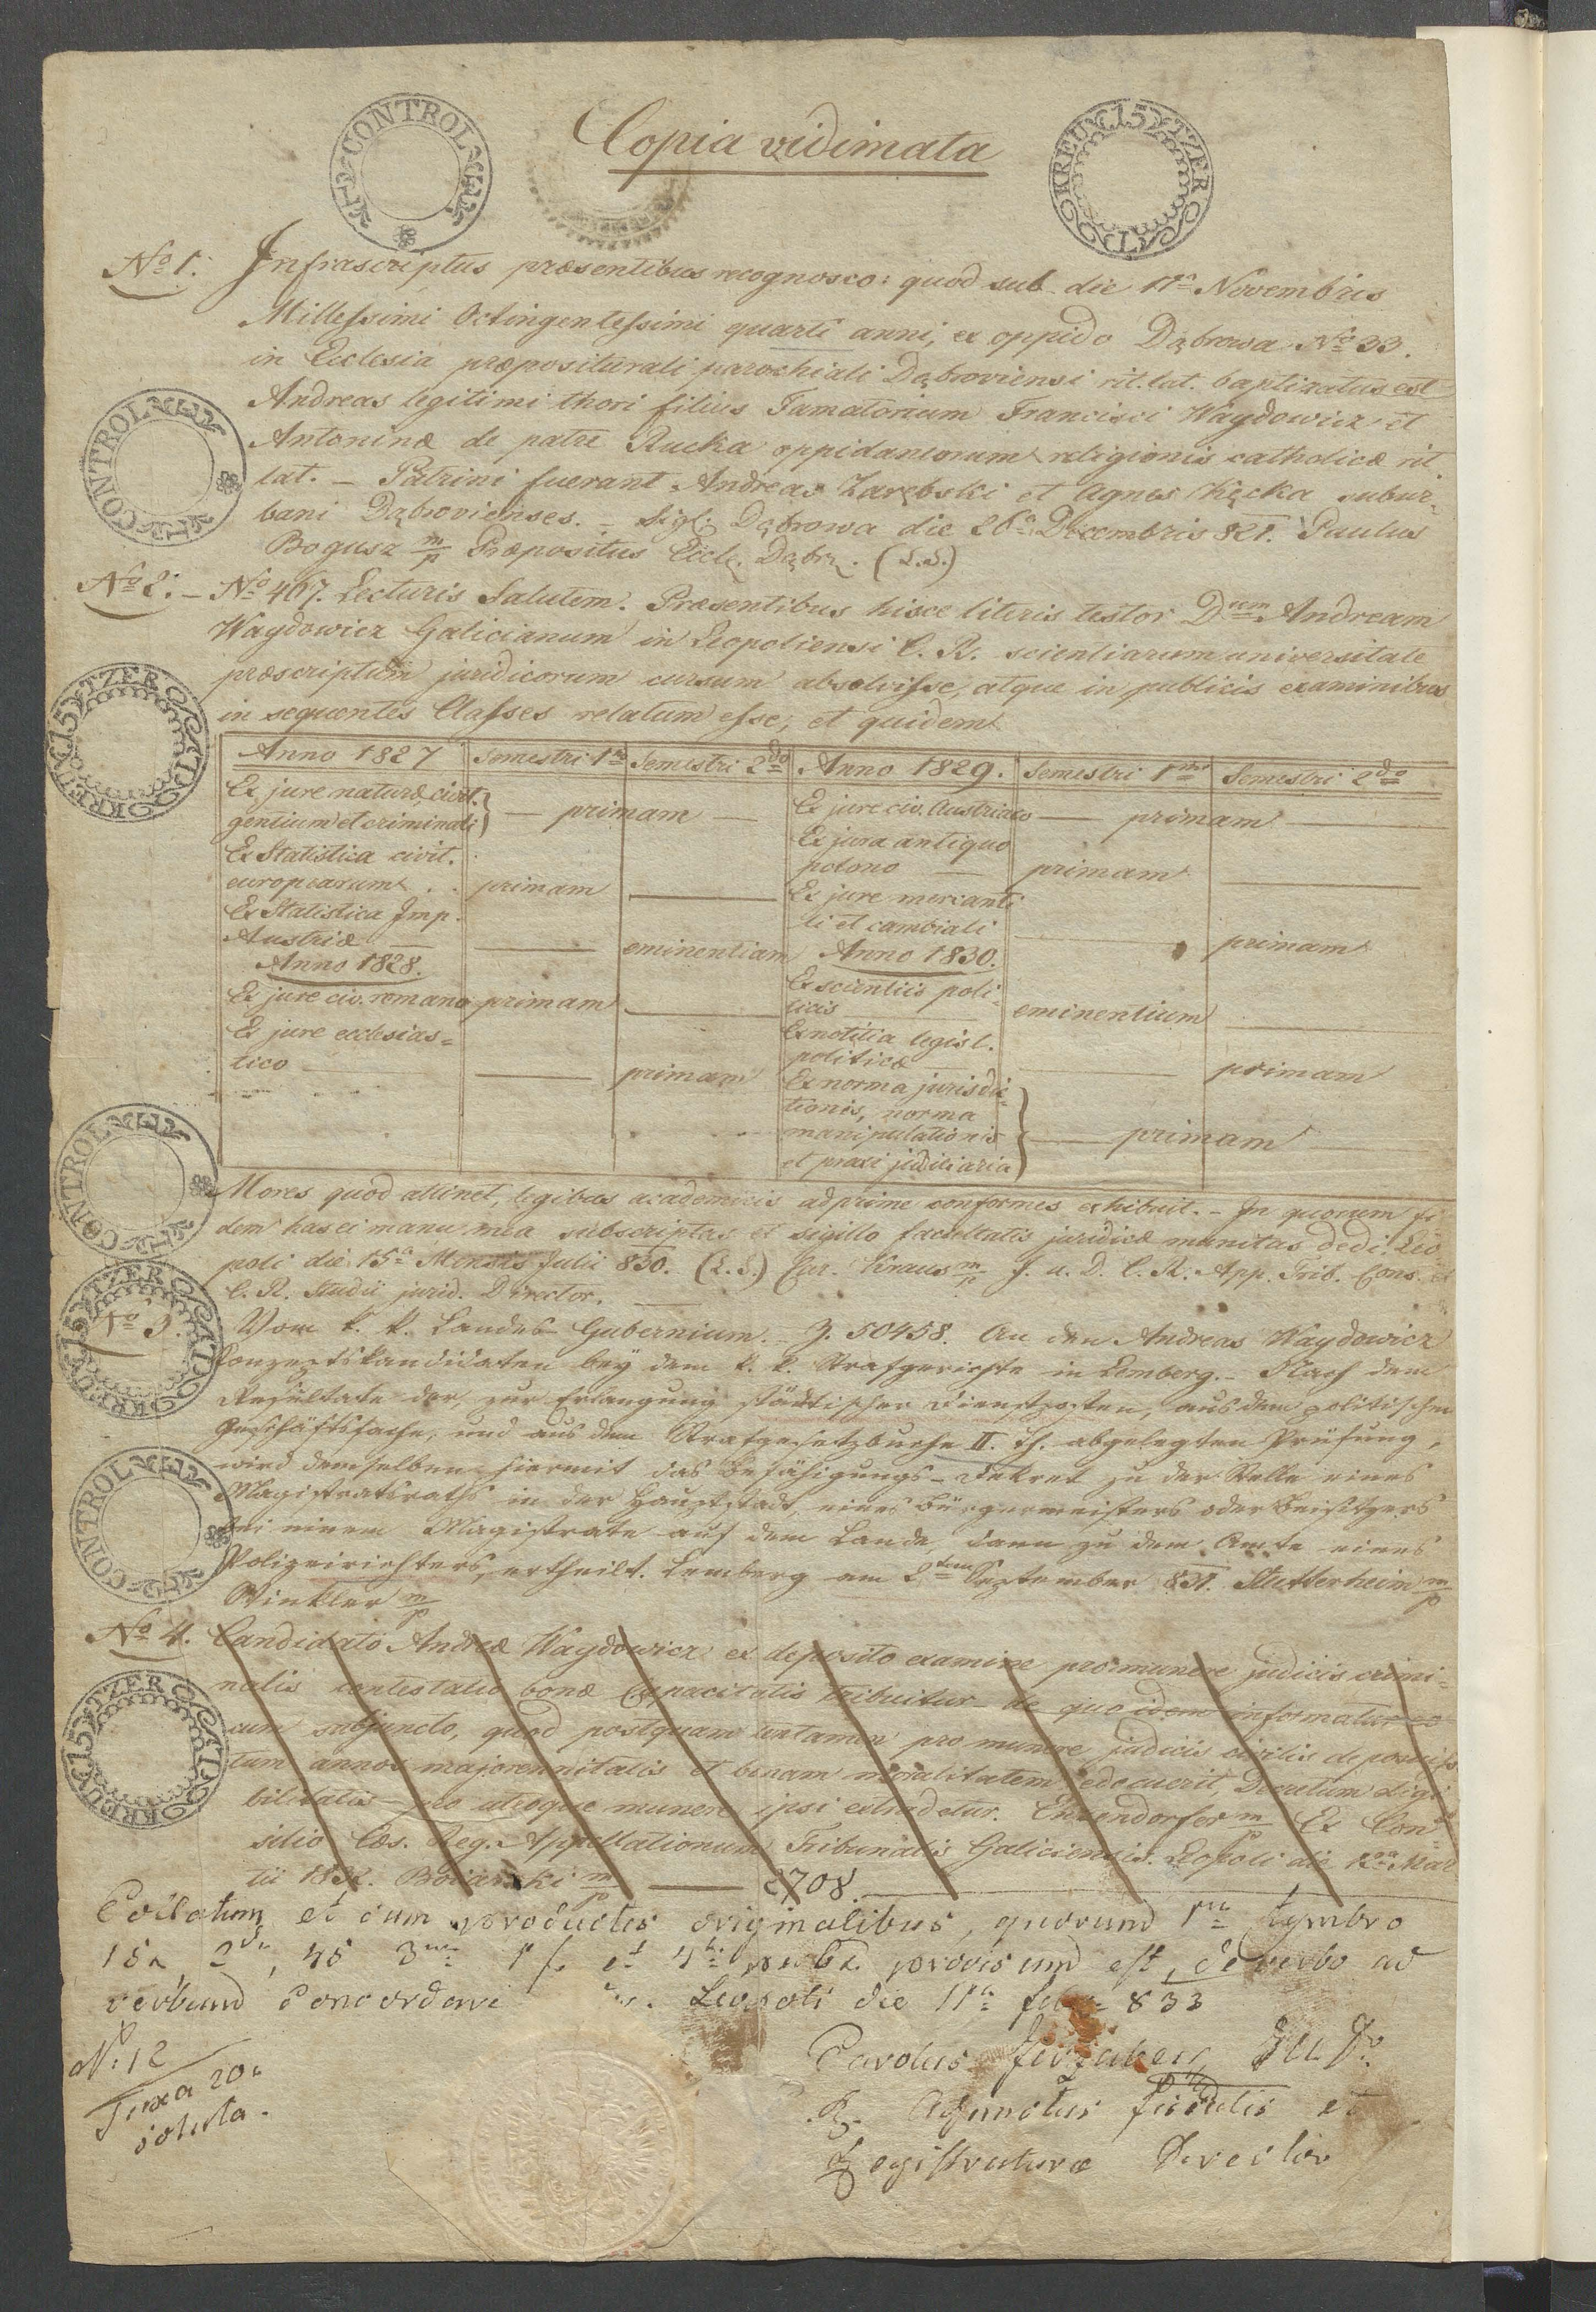 CONTROL
Copia vidimata
15 KREUTZER
No 1. Infrascriptus præsentibus recognosco: quod sub die 17a Novembris
Millessimi Octingentessimi quarti anni, ex oppido Dąbrowa No 33.
in Ecclesia præpositurali parochiali Dąbroviensi rit. lat. baptizatus est
Andreas legitimi thori filius Famatorum Francisci Waydowicz et
Antoninæ de patre Rucka oppidaneorum religionis catholicæ rit.
lat. – Patrini fuerant Andreas Zarębski et Agnes Kącka subur-
bani Dąbrovienses. – Sigl. Dąbrowa die 26a Decembris 821. Paulus
Bogusz m/p Præpositus Eccle. Dąbr. (L.S.)
No 2. – No 467. Lecturis Salutem. Præsentibus hisce literis testor Dnum Andream
Waydowicz Galicianum in Leopoliensi C. R. scientiarum universitate
præscriptum juridicorum cursum absolvisse, atque in publicis examinibus
in sequentes Classes relatum esse, et quidem
Anno 1827 Semestri 1mo Semestri 2do Anno 1829. Semestri 1mo Semestri 2do
Ex jure naturæ, civit. Ex jure civ. Austriaco
gentium et criminali – primam – – primam
Ex Statistica civit. Ex jure antiquo
europearum . . primam polono – primam
Ex Statistica Imp. Ex jure mercanti
Austriæ – eminentiam li et cambiali primam
Anno 1828. Anno 1830.
Ex jure civ. romano primam Ex scientiis poli-
ticis eminentium
Ex jure ecclesias= Ex notitia legisl.
tico – primam politicæ – primam
Ex norma jurisdic-
tionis, norma
manipulationis – primam
et praxi judiciaria
Mores quod attinet, legibus academicis adprime conformes exhibuit. – In quorum fi
dem hasce manu mea subscriptas et sigillo facultatis juridicæ munitas dedi. Leo
poli die 15a Mensis Julii 830. (L.S.) Car. Kraus m/p J. u. D. C. R. App. Trib. Cons. et
C. R. Studii jurid. Director.
No 3. Vom k. k. Landes-Gubernium. Z. 50458. An den Andreas Waydowicz
Konzeptskandidaten bey dem k. k. Strafgerichte in Lemberg. – Nach dem
Resultate der, zur Erlangung städtischer Dienstposten, aus dem politischen
Geschäftsfache, und aus dem Strafgesetzbuche II. Th. abgelegten Prüfung,
wird demselben hiermit das Befähigungs-Dekret zu der Stelle eines
Magistratsraths in der Hauptstadt, eines Bürgermeisters oder Beisitzers
bei einem Magistrate auf dem Lande, dann zu dem Amte eines
Polizeirichters, ertheilt. Lemberg am 2ten September 831. Stutterheim m/p
Winkler m/p
No 4. Candidato Andreæ Waydowicz ex deposito examine pro munere judicis crimi-
nalis contestatio bonæ Capacitatis tribuitur de quo idem informatur eo
cum subjuncto, quod postquam tentamen pro munere judicis civilis deposuisse
tum annos majorennitatis et bonam moralitatem edocuerit, Decretum eligi
bilitatis pro utroque munere ipsi extradetur. Enzendorfer m/p Ex Con-
silio Cæs. Reg. Appellationum Tribunalis Galiciensis. Leopoli die 12a Mar
tii 1832. m/p 2708.
Collatum et cum productis originalibus, quorum 1um tymbro
15x 2dum 45 3um 1 f. et 4tum provisum est, de verbo ad
verbum concordare Leopoli die 11a 833
No: 12
Taxa 20x
soluta.
Carolus
Adjunctus fiscalis et
Registraturæ Director
CONTROL
15 KREUTZER
CONTROL
15 KREUTZER
CONTROL
15 KREUTZER